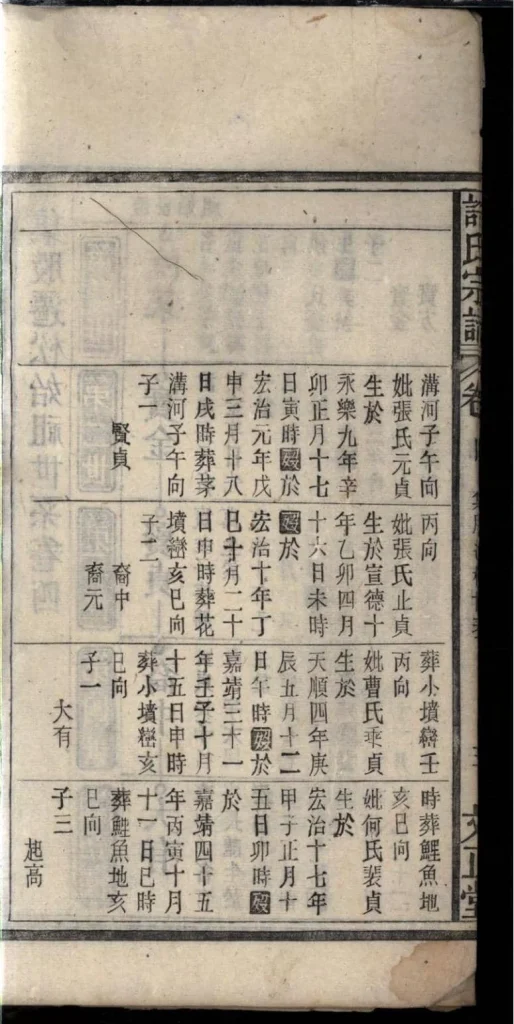 溝河子午向
妣張氏元貞
生於
永樂九年辛
卯正月十七
日寅時殁於
宏治元年戊
申三月十八
日戌時葬茅
溝河子午向
子一
賢貞
丙向
妣張氏止貞
生於宣德十
年乙卯四月
十六日未時
殁於
宏治十年丁
巳十月二十
日申時葬花
墳巒亥巳向
子二
裔中
裔元
葬小墳巒壬
丙向
妣曹氏乘貞
生於
天順四年庚
辰五月十二
日午時殁於
嘉靖三十一
年壬子十月
十五日申時
葬小墳巒亥
巳向
子一
大有
時葬鯉魚地
亥巳向
妣何氏裴貞
生於
宏治十七年
甲子正月十
五日卯時殁
於
嘉靖四十五
年丙寅十月
十一日巳時
葬鯉魚地亥
巳向
子三
起高